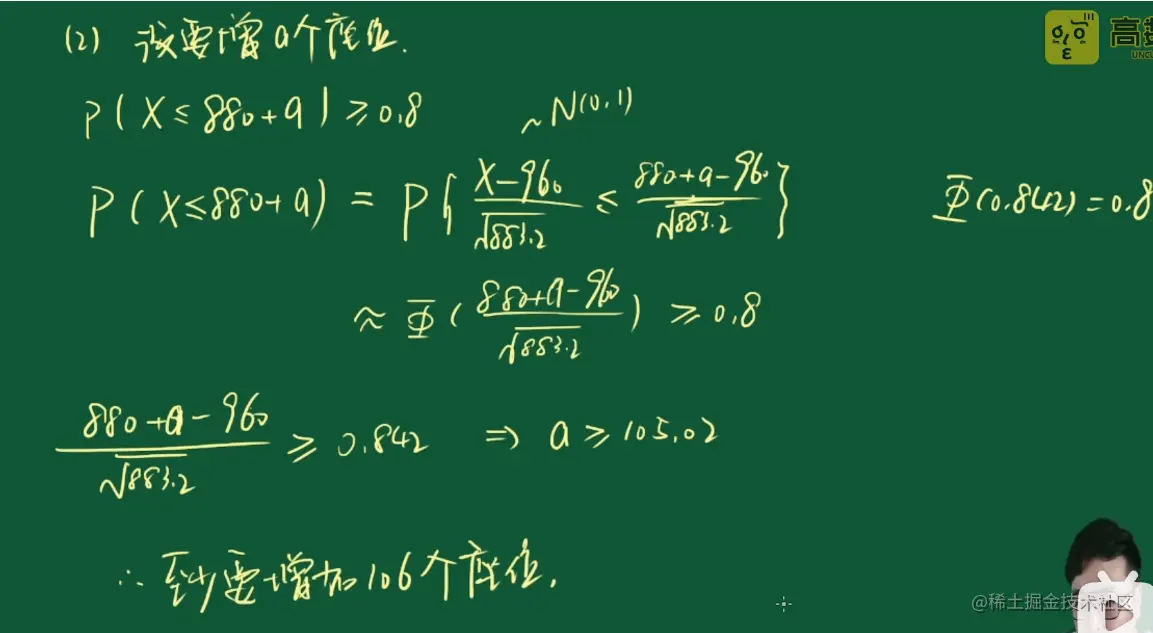 高数
UNCL
(2) 设要增a个座位.
P(X≤880+a)≥0.8
~N(0,1)
P(X≤880+a) = P{(X-960)/√883.2 ≤ (880+a-960)/√883.2}
Φ(0.842)=0.8
≈ Φ((880+a-960)/√883.2) ≥ 0.8
(880+a-960)/√883.2 ≥ 0.842 ⇒ a≥105.02
∴ 至少要增加106个座位.
@稀土掘金技术社区